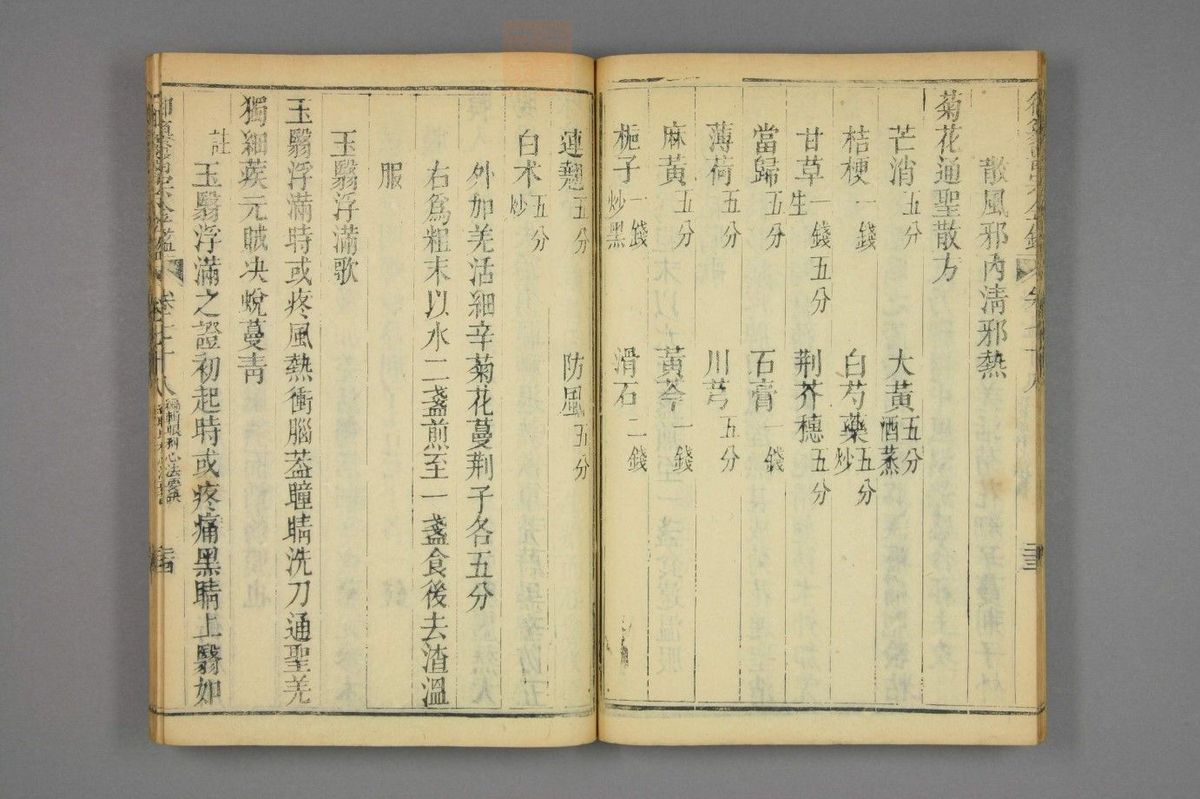 散風邪內淸邪熱
菊花通聖散方
芒消五分 大黃五分酒蒸
桔梗一錢 白芍藥五分炒
甘草生一錢五分 荆芥穗五分
當歸五分 石膏一錢
薄荷五分 川芎五分
麻黃五分 黃芩一錢
梔子一錢炒黑 滑石二錢
連翹五分 防風五分
白术五分炒
外加羌活細辛菊花蔓荆子各五分
右爲粗末以水二盞煎至一盞食後去渣溫
服
玉翳浮滿歌
玉翳浮滿時或疼風熱衝腦葢瞳睛洗刀通聖羌
獨細蒺元賊决蛻蔓靑
註玉翳浮滿之證初起時或疼痛黑睛上翳如
卷七十八 編輯眼科心法要訣